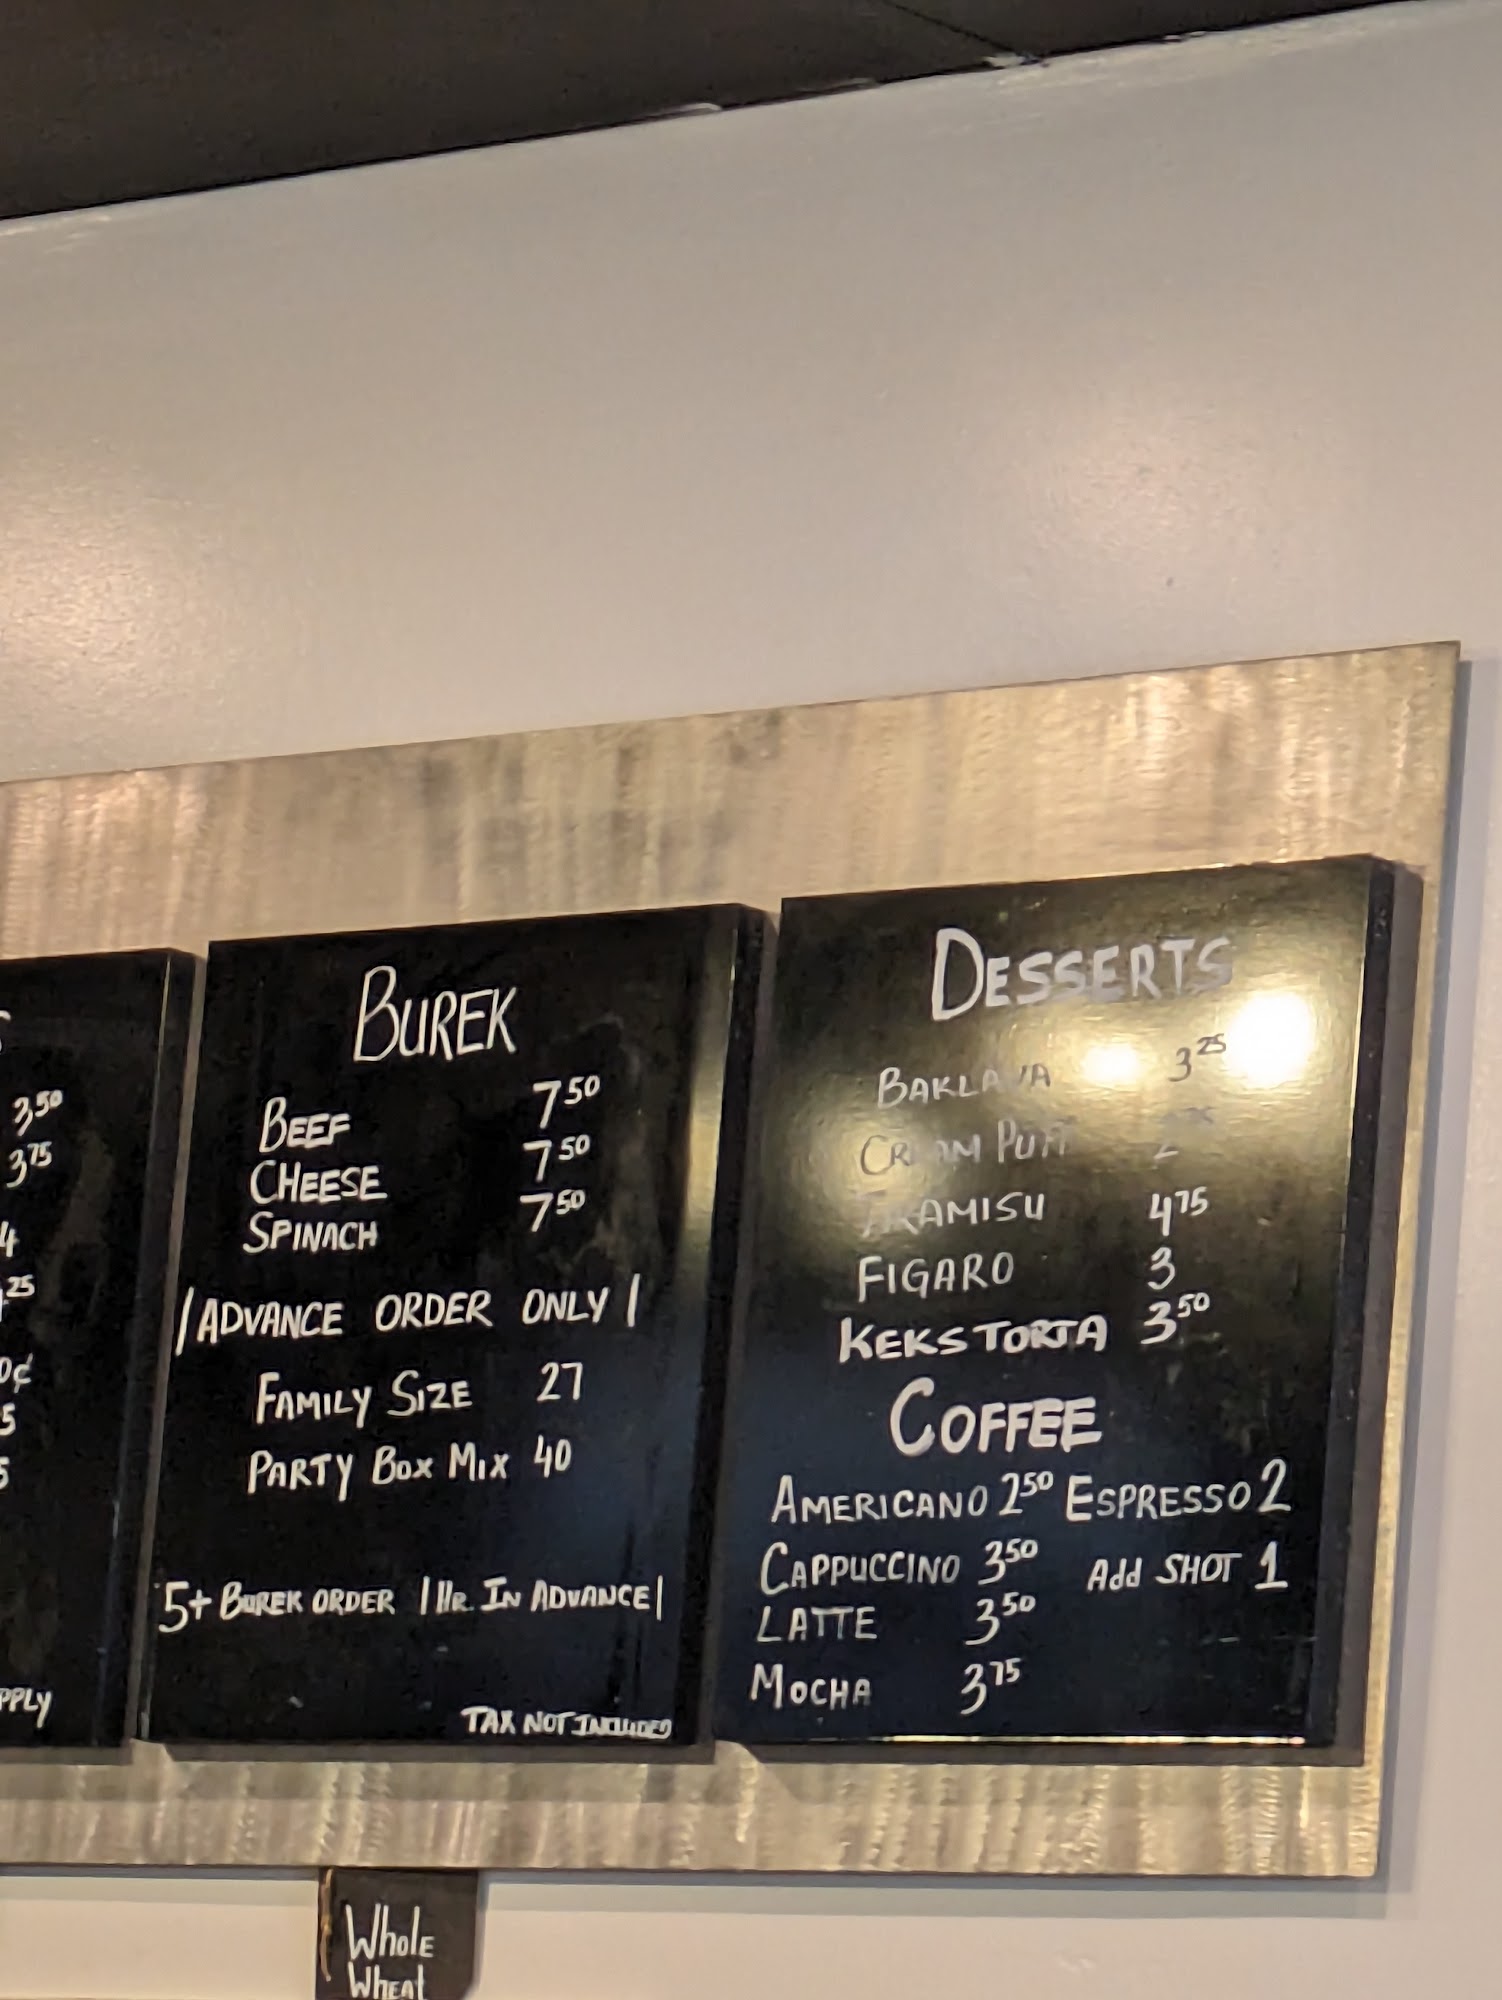 3.50
3.75
4
.25
0¢
5
5
PPLY
BUREK
BEEF 7.50
CHEESE 7.50
SPINACH 7.50
/ADVANCE ORDER ONLY/
FAMILY SIZE 27
PARTY BOX MIX 40
5+ BUREK ORDER |HR. IN ADVANCE|
TAX NOT INCLUDED
DESSERTS
BAKLAVA 3.25
CREAM PUFF
TIRAMISU 4.75
FIGARO 3
KEKS TORTA 3.50
COFFEE
AMERICANO 2.50 ESPRESSO 2
CAPPUCCINO 3.50 Add SHOT 1
LATTE 3.50
MOCHA 3.75
Whole
Wheat